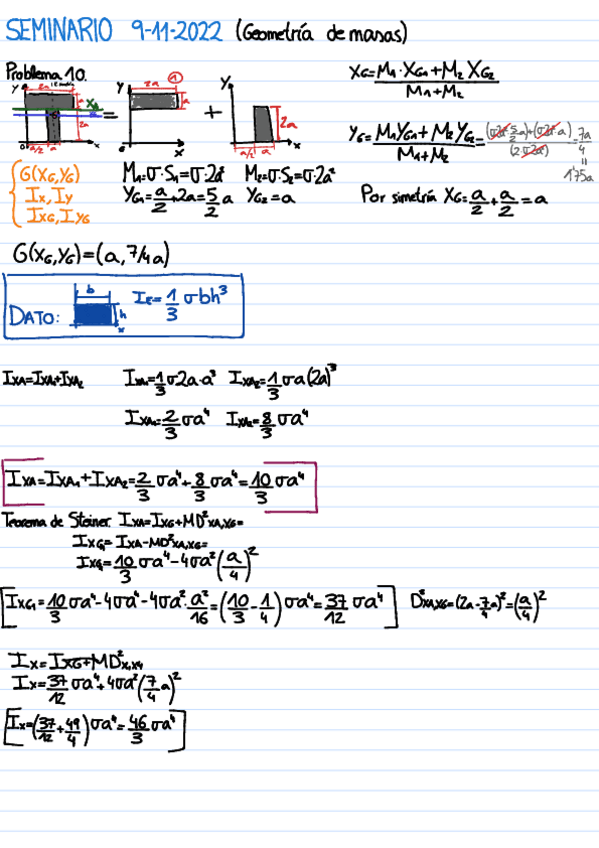 SEMINARIO 9-11-2022 (Geometría de masas)
Problema 10.
y 2a a XA 2a 0 a/2 a x = y 2a 1 a 0 x + y 2a a/2 a x
XG=M1·XG1+M2 XG2 / M1+M2
YG=M1YG1+M2 YG2 / M1+M2 = (σ2a² 5/2 a)+(σ2a² a) / (2·σ2a²) = 7a/4 = 1'75a
G(XG,YG)
Ix, Iy
IXG, IYG
M1=σ·S1=σ·2a² M2=σ·S2=σ·2a²
YG1=a/2+2a=5/2 a YG2=a
Por simetría XG=a/2+a/2=a
G(XG,YG)=(a,7/4a)
DATO: b h x Ix=1/3 σbh³
IXA=IXA1+IXA2 IXA1=1/3 σ2a·a³ IXA2=1/3 σa(2a)³
IXA1=2/3 σa⁴ IXA2=8/3 σa⁴
IXA=IXA1+IXA2=2/3 σa⁴+8/3 σa⁴=10/3 σa⁴
Teorema de Steiner. IXA=IXG+MD²XA,XG=
IXG=IXA-MD²XA,XG=
IXG=10/3 σa⁴-4σa²(a/4)²
IXG=10/3 σa⁴-4σa⁴-4σa²·a²/16=(10/3-1/4)σa⁴=37/12 σa⁴ D²XA,XG=(2a-7/4a)²=(a/4)²
Ix=IXG+MD²x,xG
Ix=37/12 σa⁴+4σa²(7/4 a)²
Ix=(37/12+49/4)σa⁴=46/3 σa⁴